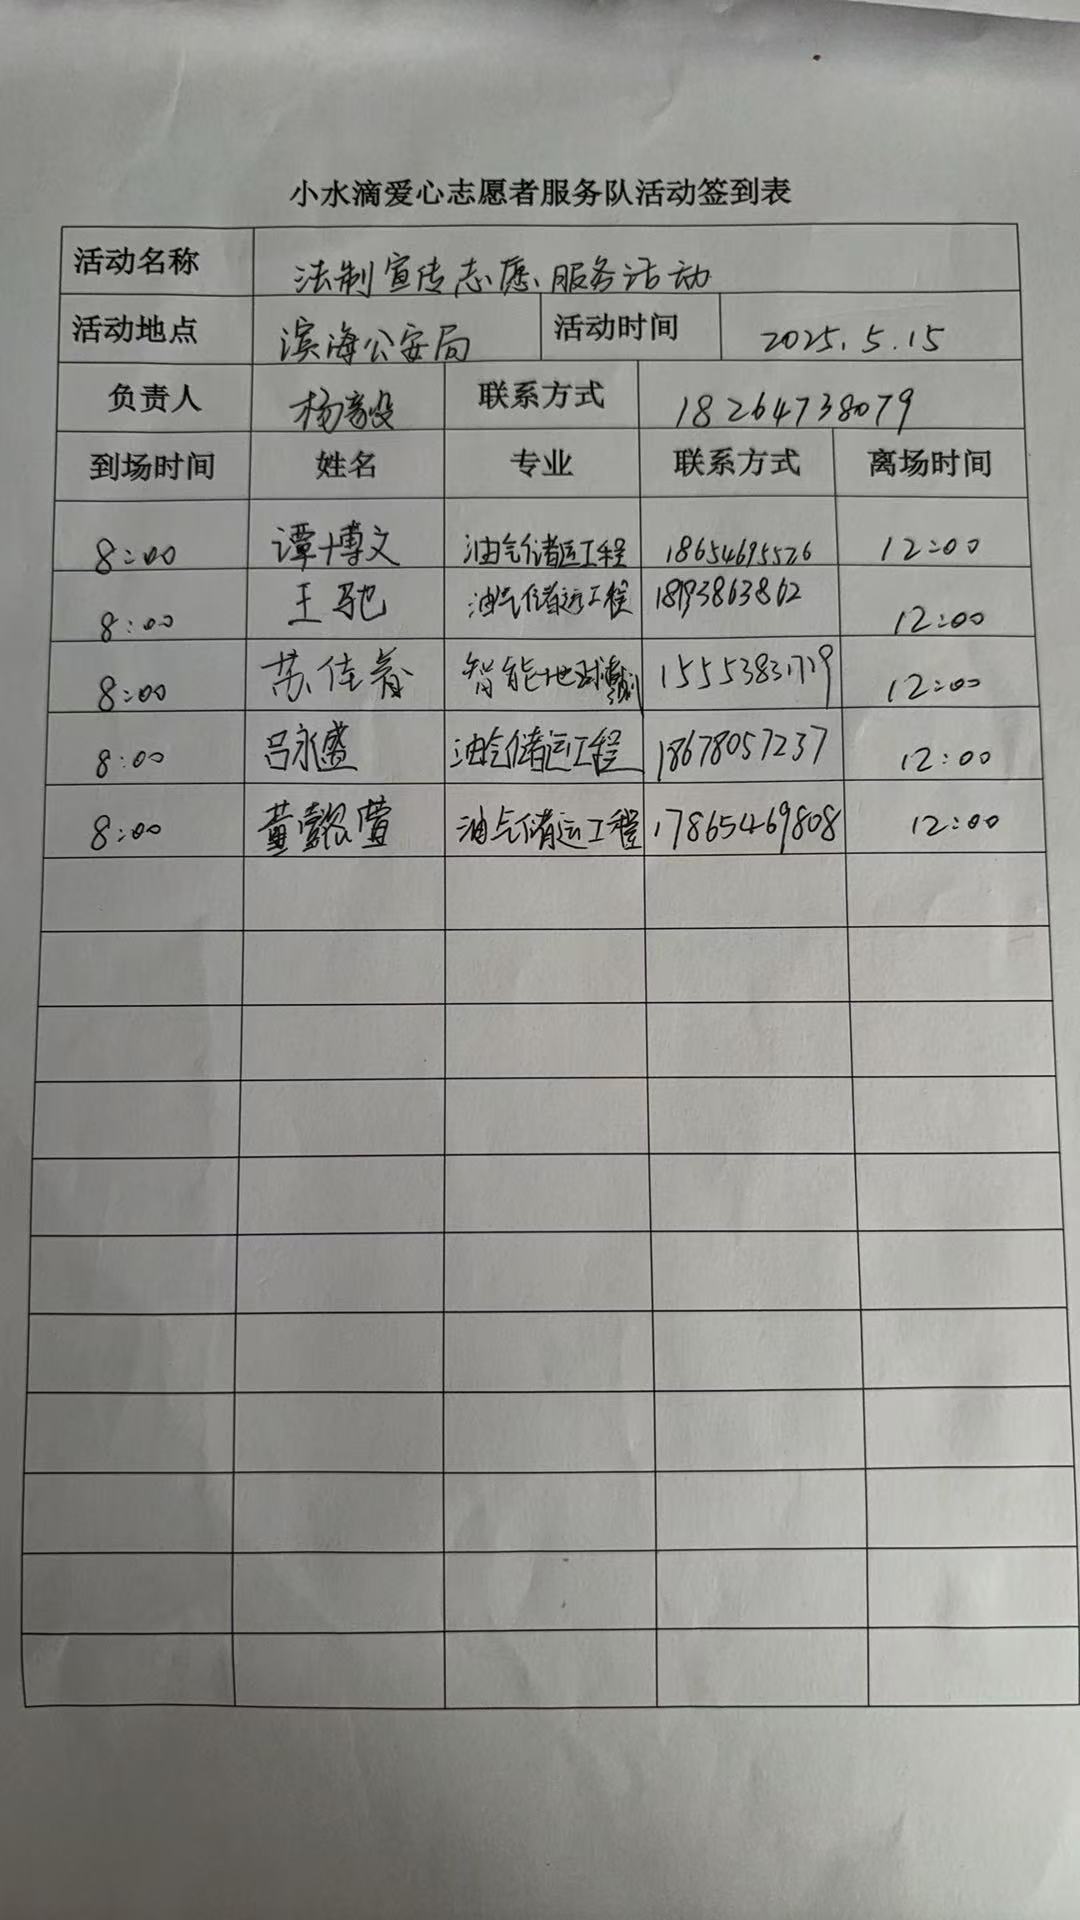 小水滴爱心志愿者服务队活动签到表
活动名称 法制宣传志愿服务活动
活动地点 滨海公安局 活动时间 2025.5.15
负责人 杨 联系方式 18264738079
到场时间 姓名 专业 联系方式 离场时间
8:00 谭博文 油气储运工程 18654695526 12:00
8:00 王驰 油气储运工程 12:00
8:00 苏佳 智能地球 15553831719 12:00
8:00 吕永盛 油气储运工程 18678057237 12:00
8:00 黄 油气储运工程 17865469808 12:00